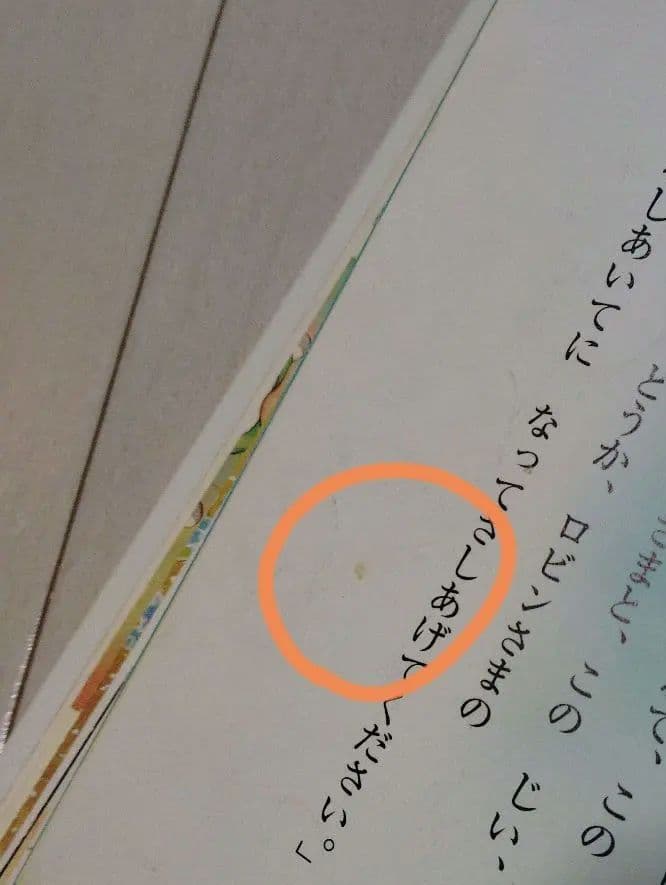 この
この　じい、
どうか、　ロビンさまの
しあいてに　なって　さしあげて　ください。」